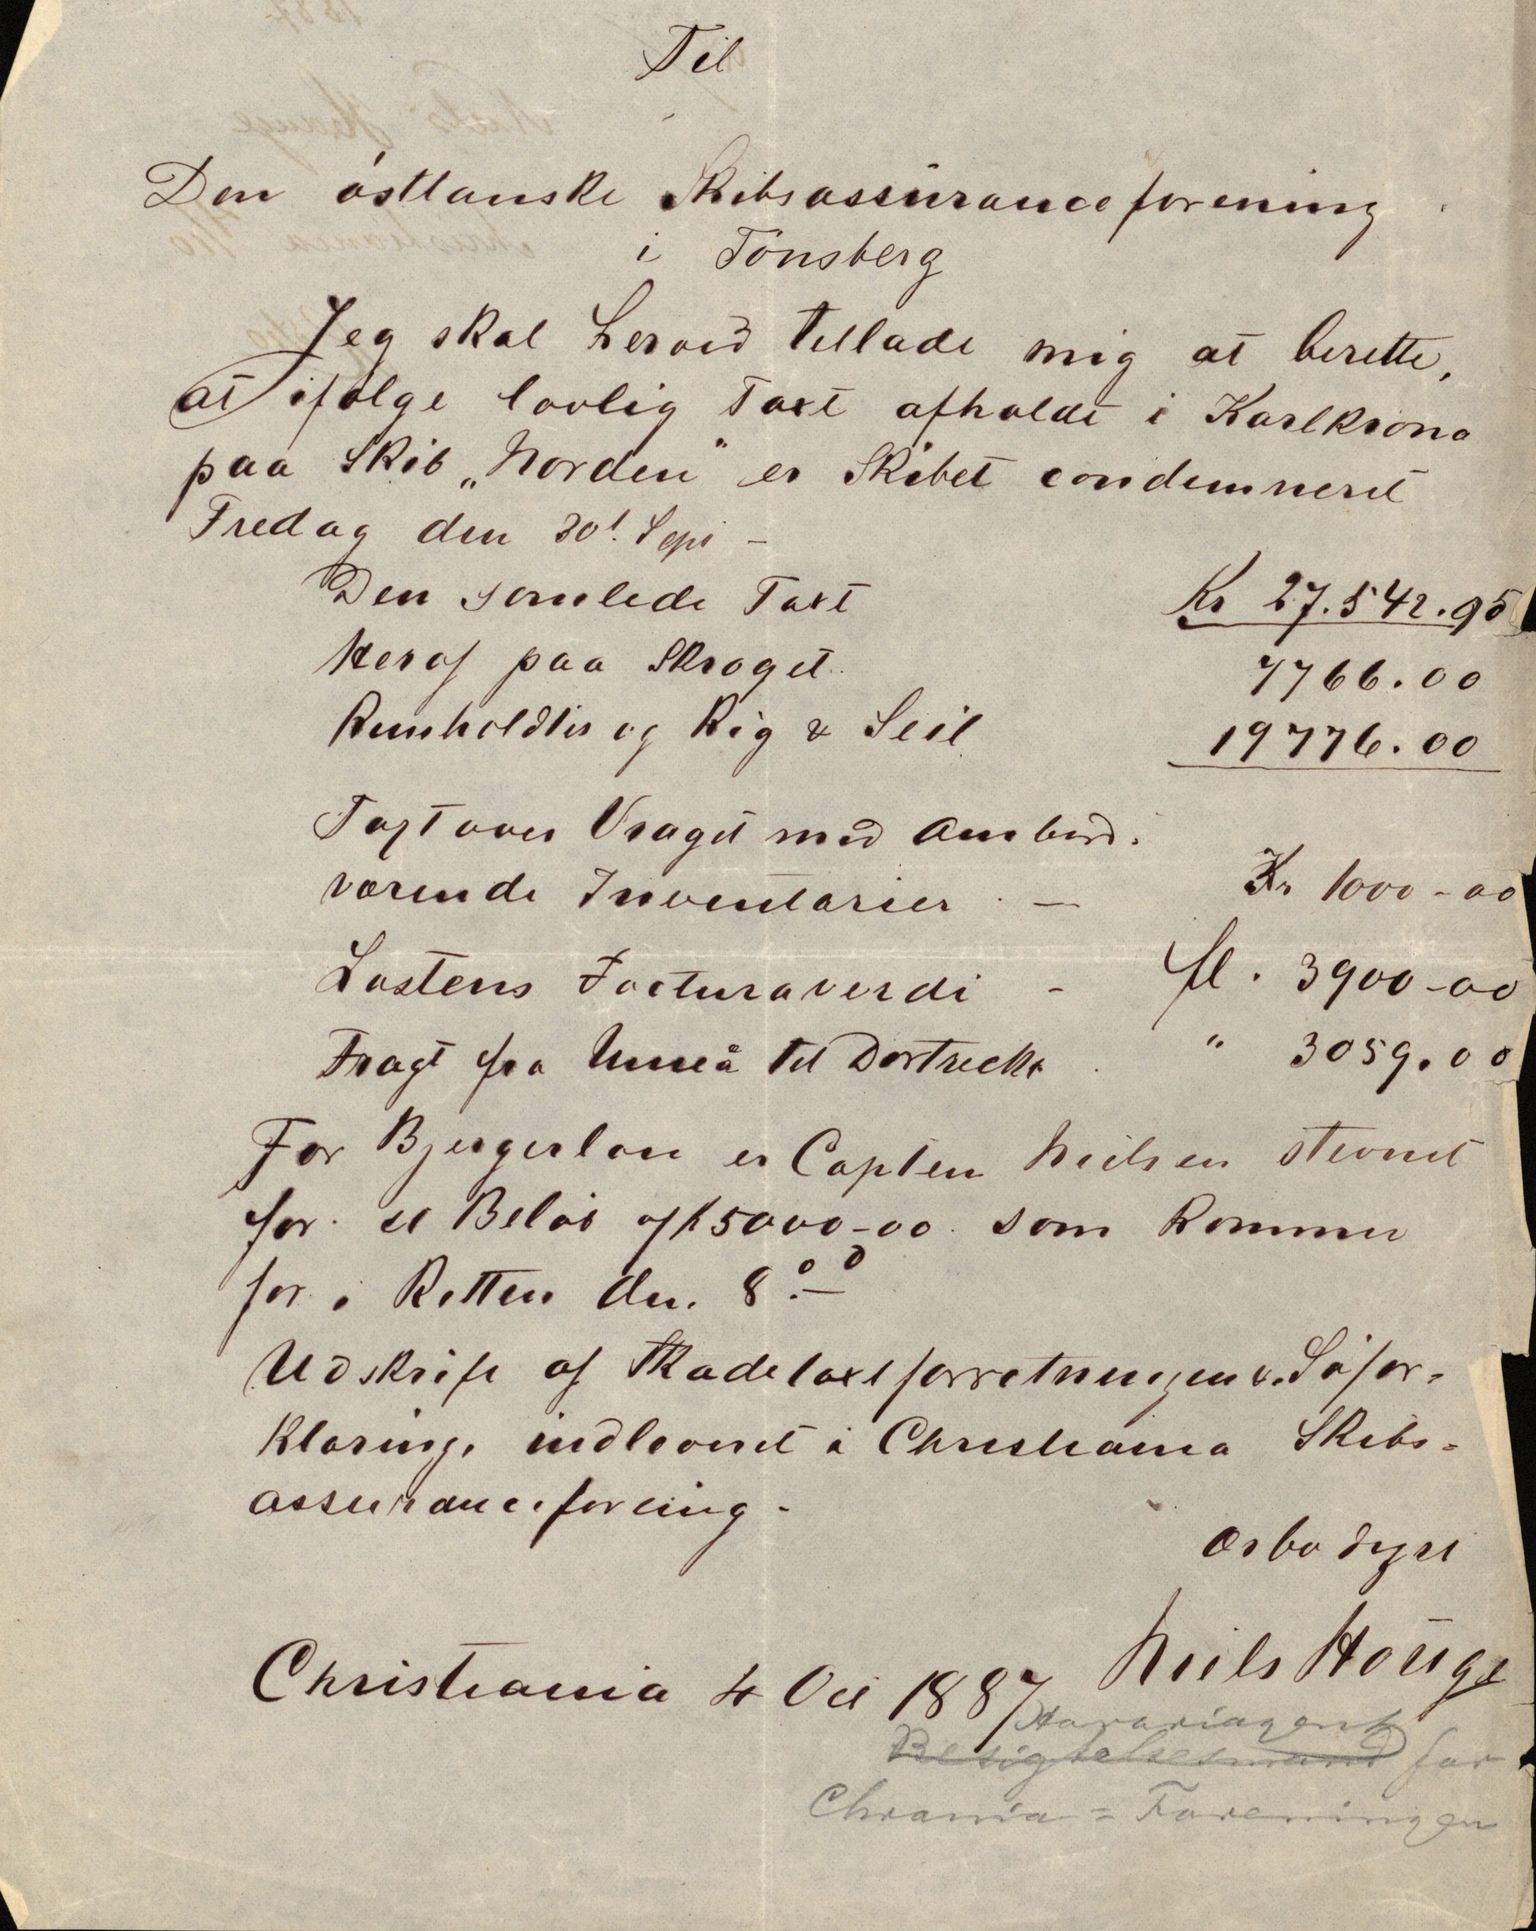 Til
Den östlanske Skibsassuranceforening
i Tönsberg
Jeg skal herved tillade mig at berette,
at ifölge lovlig Taxt afholdt i Karlkrona
paa Skib „Norden" er Skibet condemneret
Fredag den 30t. Sept –
Den samlede Taxt Kr 27.542.95
Heraf paa Skroget 7766.00
Rundholdter og Rig & Seil 19776.00
Taxt over Vraget med ombord-
værende Inventarier – Kr 1000-00
Lastens Facturaverdi - fl. 3900-00
Fragt fra Umeå til Dortrecht " 3059.00
For Bjergerlön er Capten Nielsen stevnet
for et Belöb af 15000-00 som kommer
for i Retten den 8de
Udskrift af Skadetaxtforretningen & Söfor-
klaring, indleveret i Christiania Skibs-
assuranceforeing -
Ærbödigst
Niels Houge
Christiania 4 Oct 1887
Havariagent
Besigtelsesmand for
Chrania = Foreningen